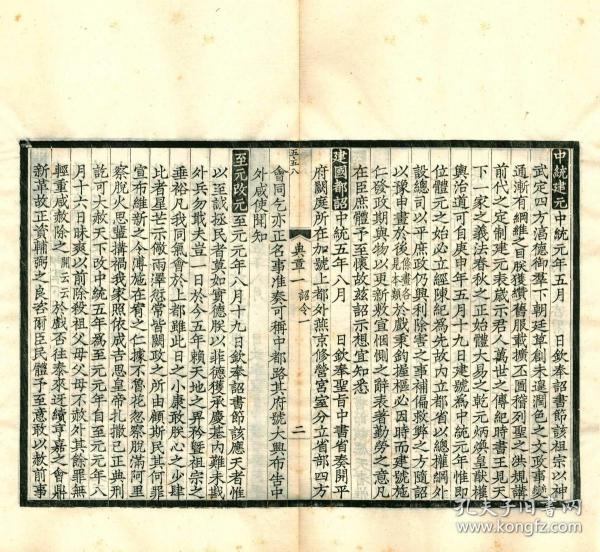 中統建元中統元年五月　日欽奉詔書節該祖宗以神
武定四方淳德御羣下朝廷草創未遑潤色之文政事變
通漸有綱維之目朕獲纘舊服載擴丕圖稽列聖之洪規講
前代之定制建元表歲示君人萬世之傳紀時書王見天
下一家之義法春秋之正始體大易之乾元炳煥皇猷權
輿治道可自庚申年五月十九日建號為中統元年惟即
位體元之始必立經陳紀為先故內立都省以總權綱外
設總司以平庶政仍興利除害之事補偏救弊之方隨詔
以豫申畫於後條畫各見本類於戲秉鈞握樞必因時而建號施
仁發政期與物以更新敷宣惻惻之辭表者勤勞之意凡
在臣庶體予至懷故茲詔示想宜知悉
建國都詔中統五年八月　日欽奉聖旨中書省奏開平
府闕庭所在加號上都外燕京修營宮室分立省部四方
典章一　詔令一
二
五五八
會同乞亦正名事准奏可稱中都路其府號大興布告中
外咸使聞知
至元改元至元元年八月十九日欽奉詔書節該應天者惟
以至誠拯民者莫如實德朕以菲德獲承慶基內難未戡
外兵勿戢夫豈一日於今五年賴天地之畀矜暨祖宗之
垂裕凡我同氣會於上都雖此日之小康敢朕心之少肆
比者星芒示儆雨澤愆常皆闕政之所由顧斯民其何罪
宣布維新之令溥施在宥之仁據不魯花忽察脫滿阿里
察脫火思輩搆禍我家照依成吉思皇帝扎撒已正典刑
訖可大赦天下改中統五年為至元元年自至元元年八
月十六日昧爽以前除殺祖父母父母不赦外其餘罪無
輕重咸赦除之開云云於戲否往泰來迓續亨嘉之會鼎
新革故正資輔弼之良咨爾臣民體予至意敢以赦前事
孔夫子旧书网
www.kongfz.com